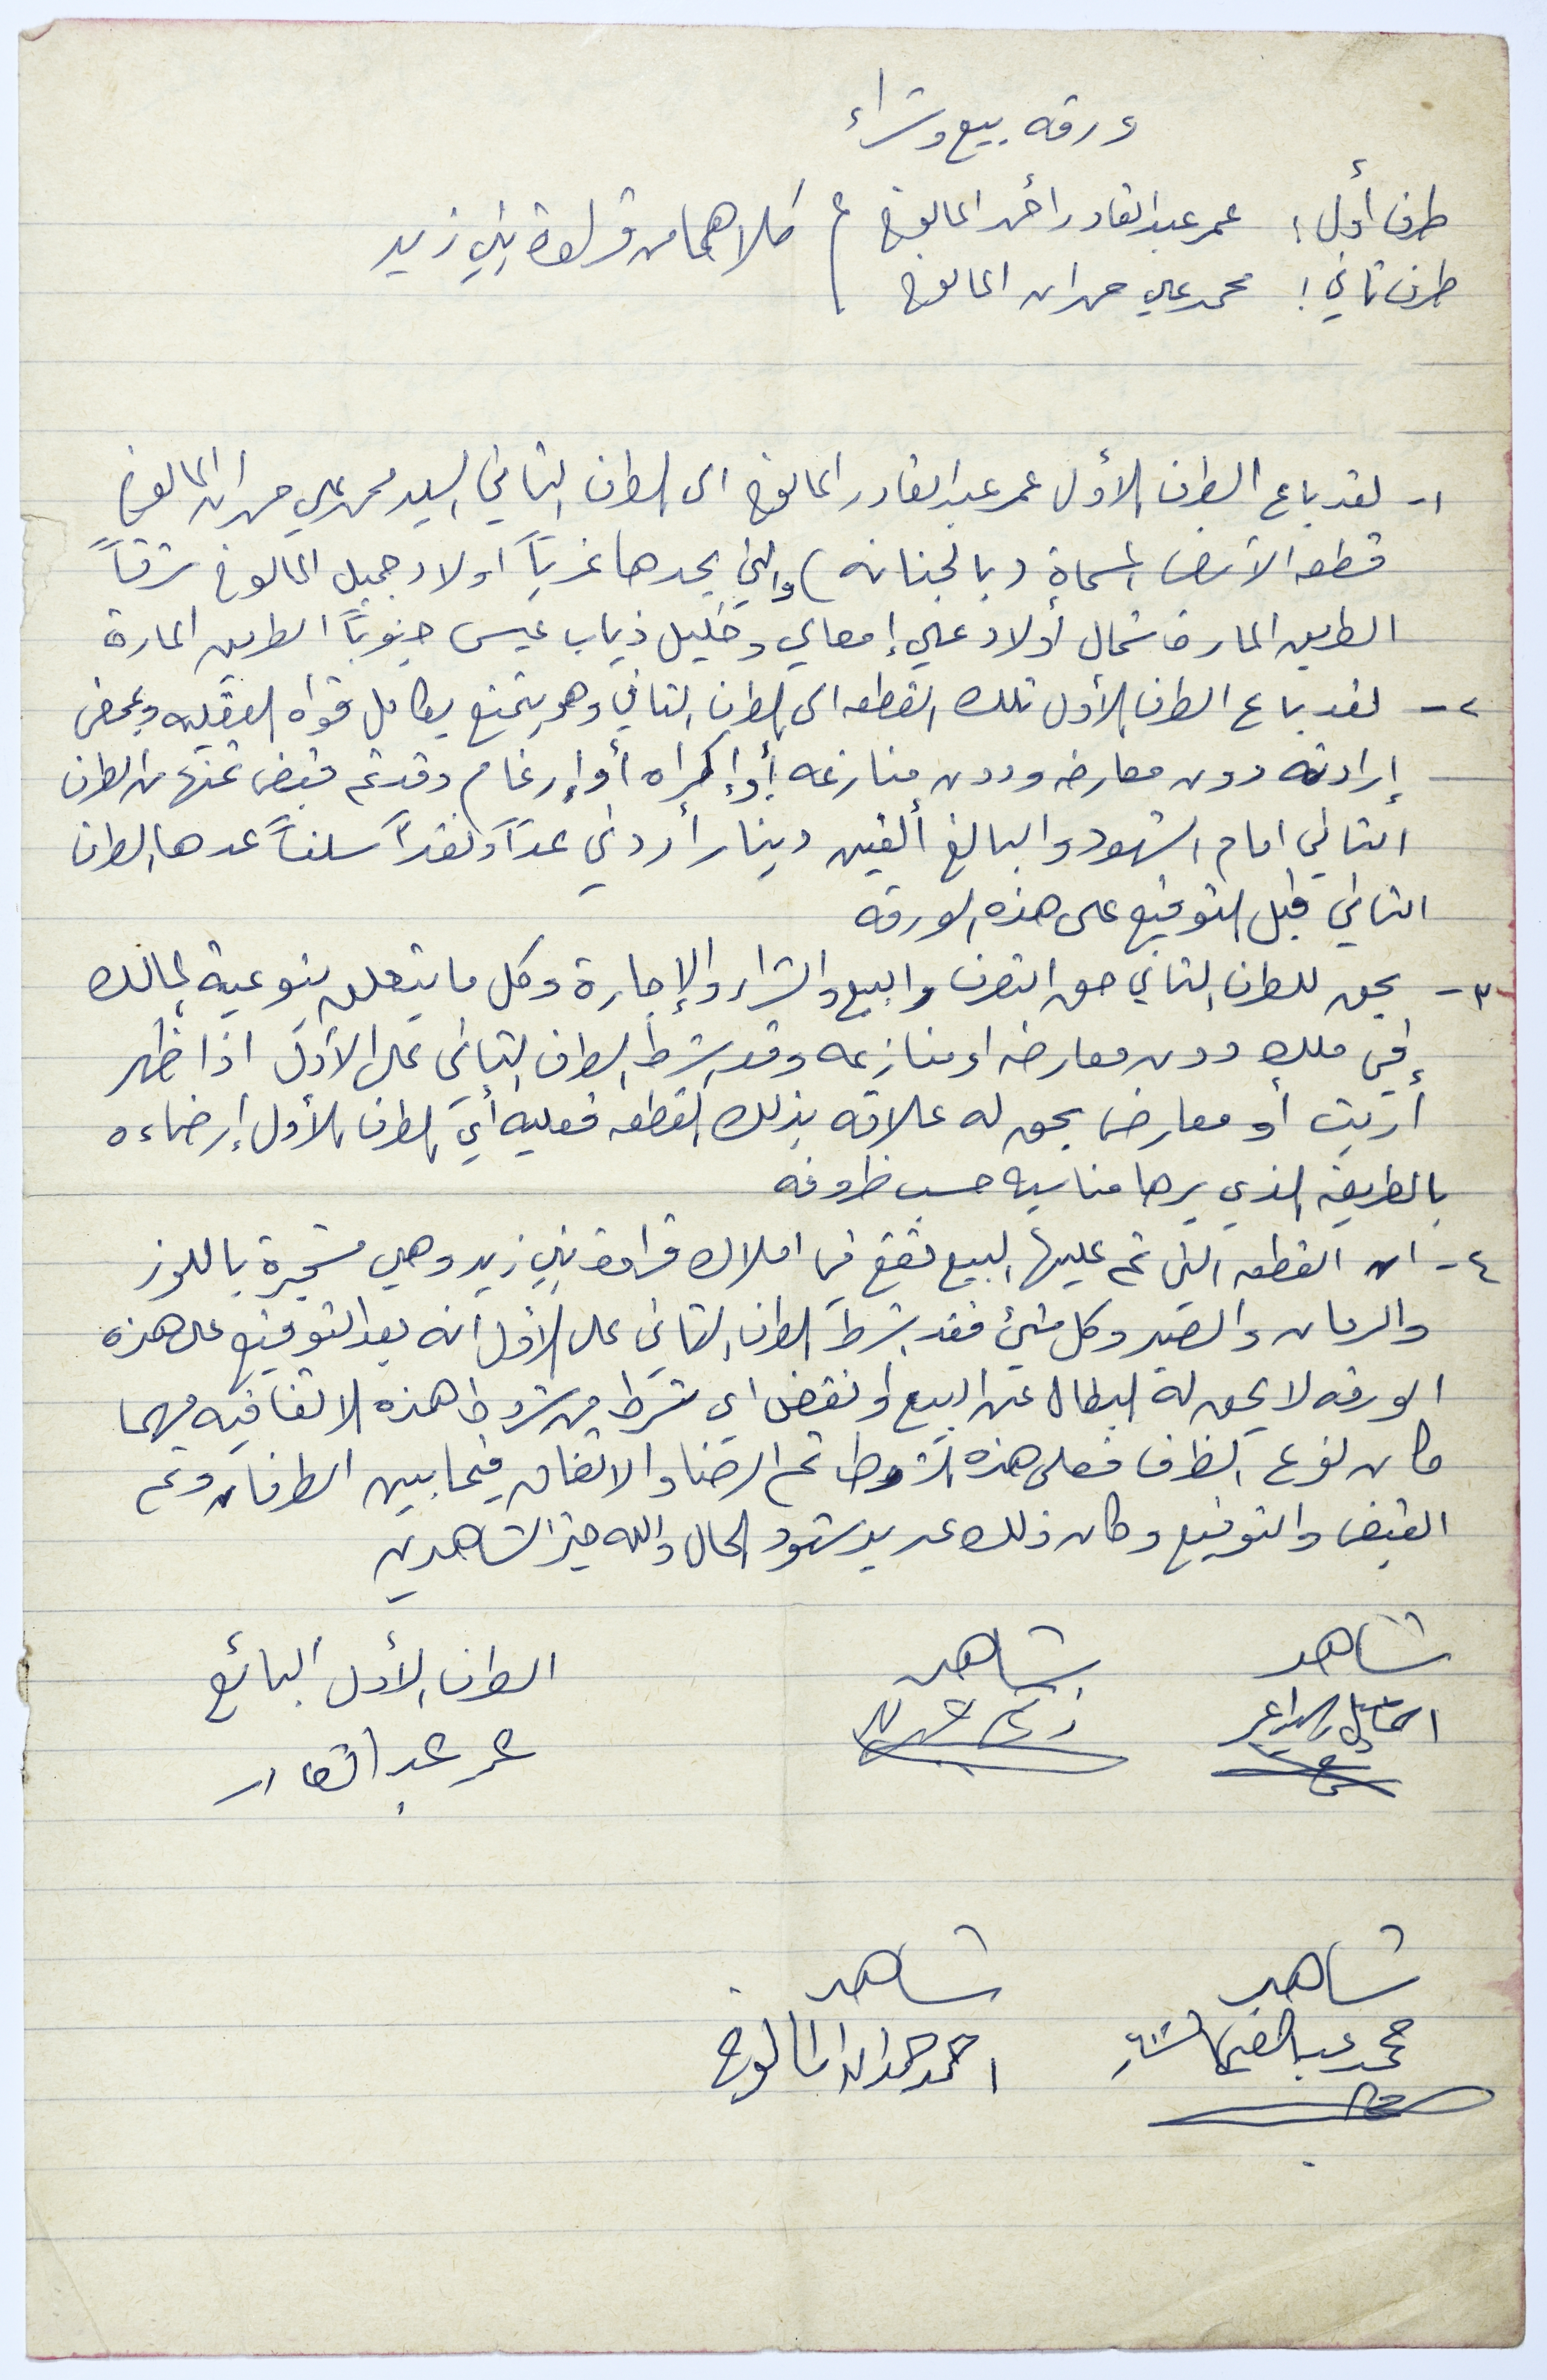 ورقه بيع وشراء
طرف أول : عمر عبد القادر احمد المالوخ
كلاهما من قراوة بني زيد
طرف ثاني : محمد علي حمدان المالوخ
١- لقد باع الطرف الأول عمر عبد القادر المالوخ الى الطرف الثاني السيد محمد علي حمدان المالوخ
قطعه الأرض المسماة ( بالجنانه ) والتي يحدها غرباً اولاد جميل المالوخ شرقاً
الطريق المار شمال أولاد علي إمعالي وخليل ذياب عيسى جنوباً الطريق المارة
٢- لقد باع الطرف الأول تلك القطعه الى الطرف الثاني وهو يتمتع بكامل قواه العقليه وبمحض
إرادته دون معارضه ودون منازعه أو إكراه أو إرغام وقد تم قبض ثمنها من الطرف
الثاني امام الشهود والبالغ ألفين ديناراً أردني عداً ونقداً سلفاً عدها الطرف
الثاني قبل التوقيع على هذه الورقه
٣- يحق للطرف الثاني حق التصرف والبيع والشراء والإجارة وكل ما يتعلق بنوعية المالك
في ملكه دون معارضه او منازعه وقد اشرط الطرف الثاني على الأول اذا ظهر
أريت أو معارض يحق له علاقه بذلك القطعه فعليه أي الطرف الأول إرضاءه
بالطريقه الذي يرها مناسبه حسب ظروفه
٤- ان القطعه التي تم عليها البيع تقع في املاك قراوة بني زيد وهي مشجرة باللوز
والرمان والصبر وكل شيئ فقد شرط الطرف الثاني على الأول أنه بعد التوقيع على هذه
الورقه لا يحق له البطال عن البيع أو نقض اي شرط من شروط هذه الاتفاقيه مهما
كان نوع الظرف فعلى هذه الشروط تم الرضا والاتفاق فيما بين الطرفان وتم
القبض والتوقيع وكان ذلك عد يد شهود الحال والله خير الشاهدين
شاهد شاهد الطرف الأول البائع
عمر عبد القادر
شاهد شاهد
محمد عبد احمد حمدان المالوخ